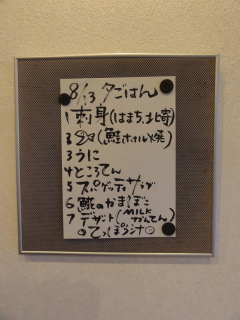 8/13 夕ごはん
1 刺身(はまち、北寄)
2 (鮭ホイル焼)
3 うに
4 ところてん
5 スパゲッティサラダ
6 糀のかまぼこ
7 デザート(MILKかんてん)
◎てっぽう汁◎